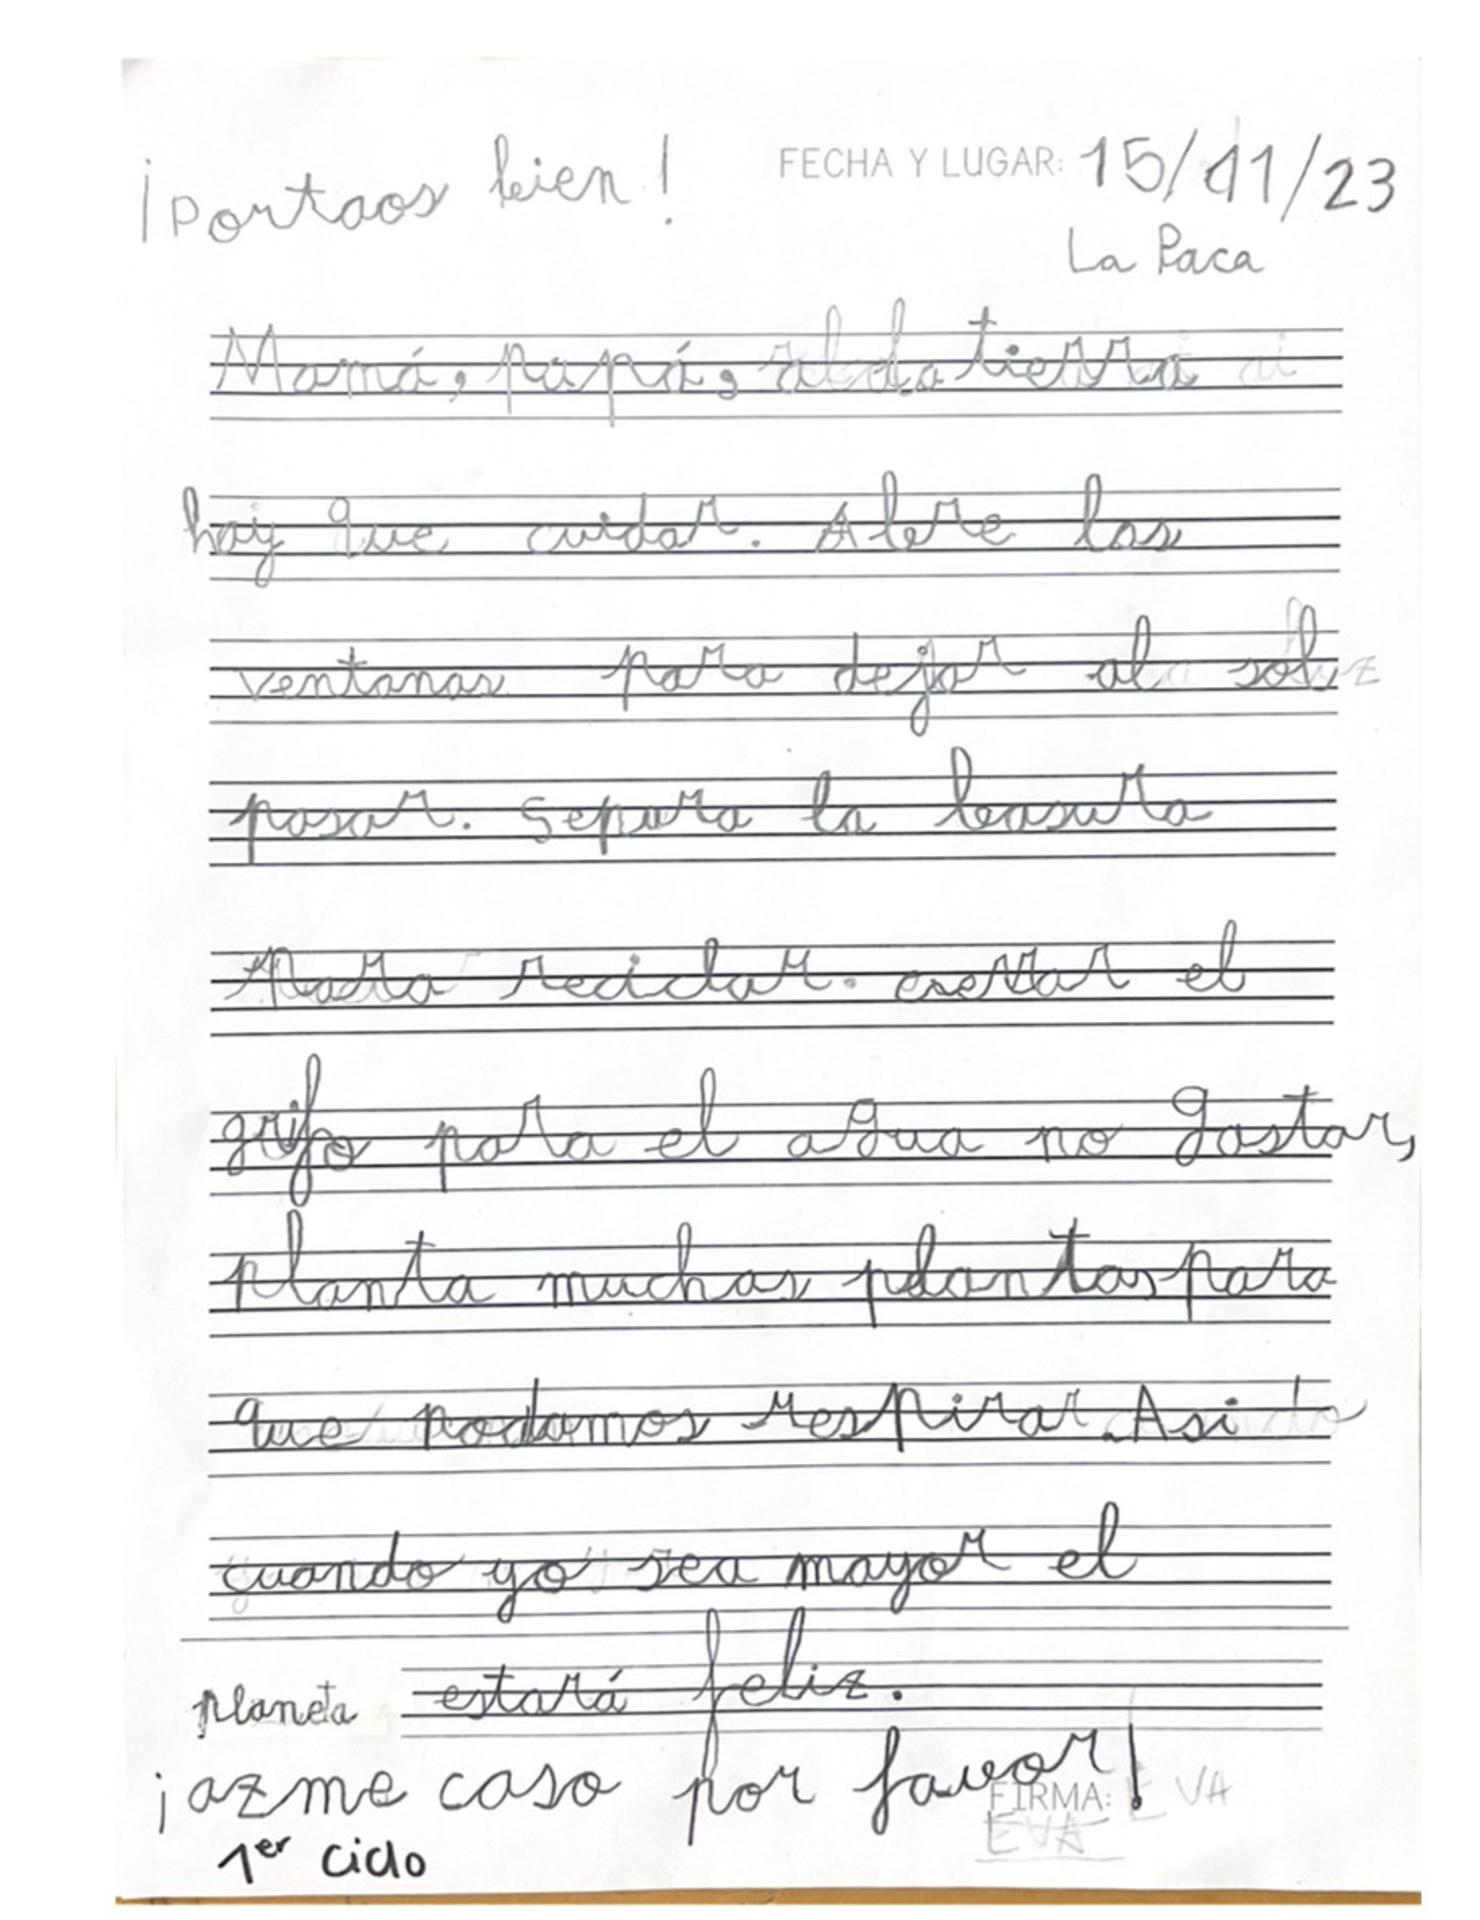 ¡Portaos bien! FECHA Y LUGAR: 15/11/23
La Paca
Mamá, papá, a la tierra
hay que cuidar. Abre las
ventanas para dejar al sol
pasar. Separa la basura
Para reciclar. cerrar el
grifo para el agua no gastar,
planta muchas plantas para
que podamos respirar. Asi
cuando yo sea mayor el
planeta estará feliz.
¡azme caso por favor!
FIRMA: EVA
EVA
1er ciclo